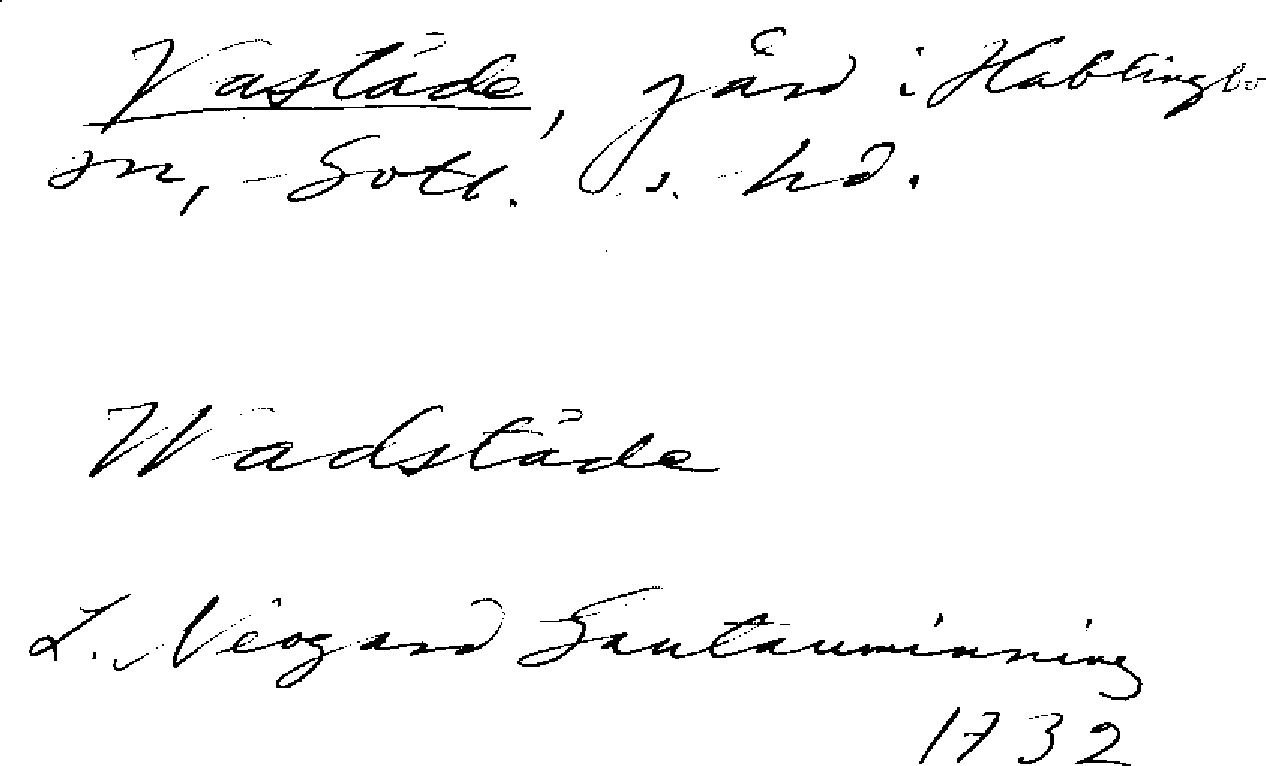 Vaståde, gård i Hablingbo
sn, Gotl. s. hd.
Wadståde
L. Neogard Gautauminning
1732